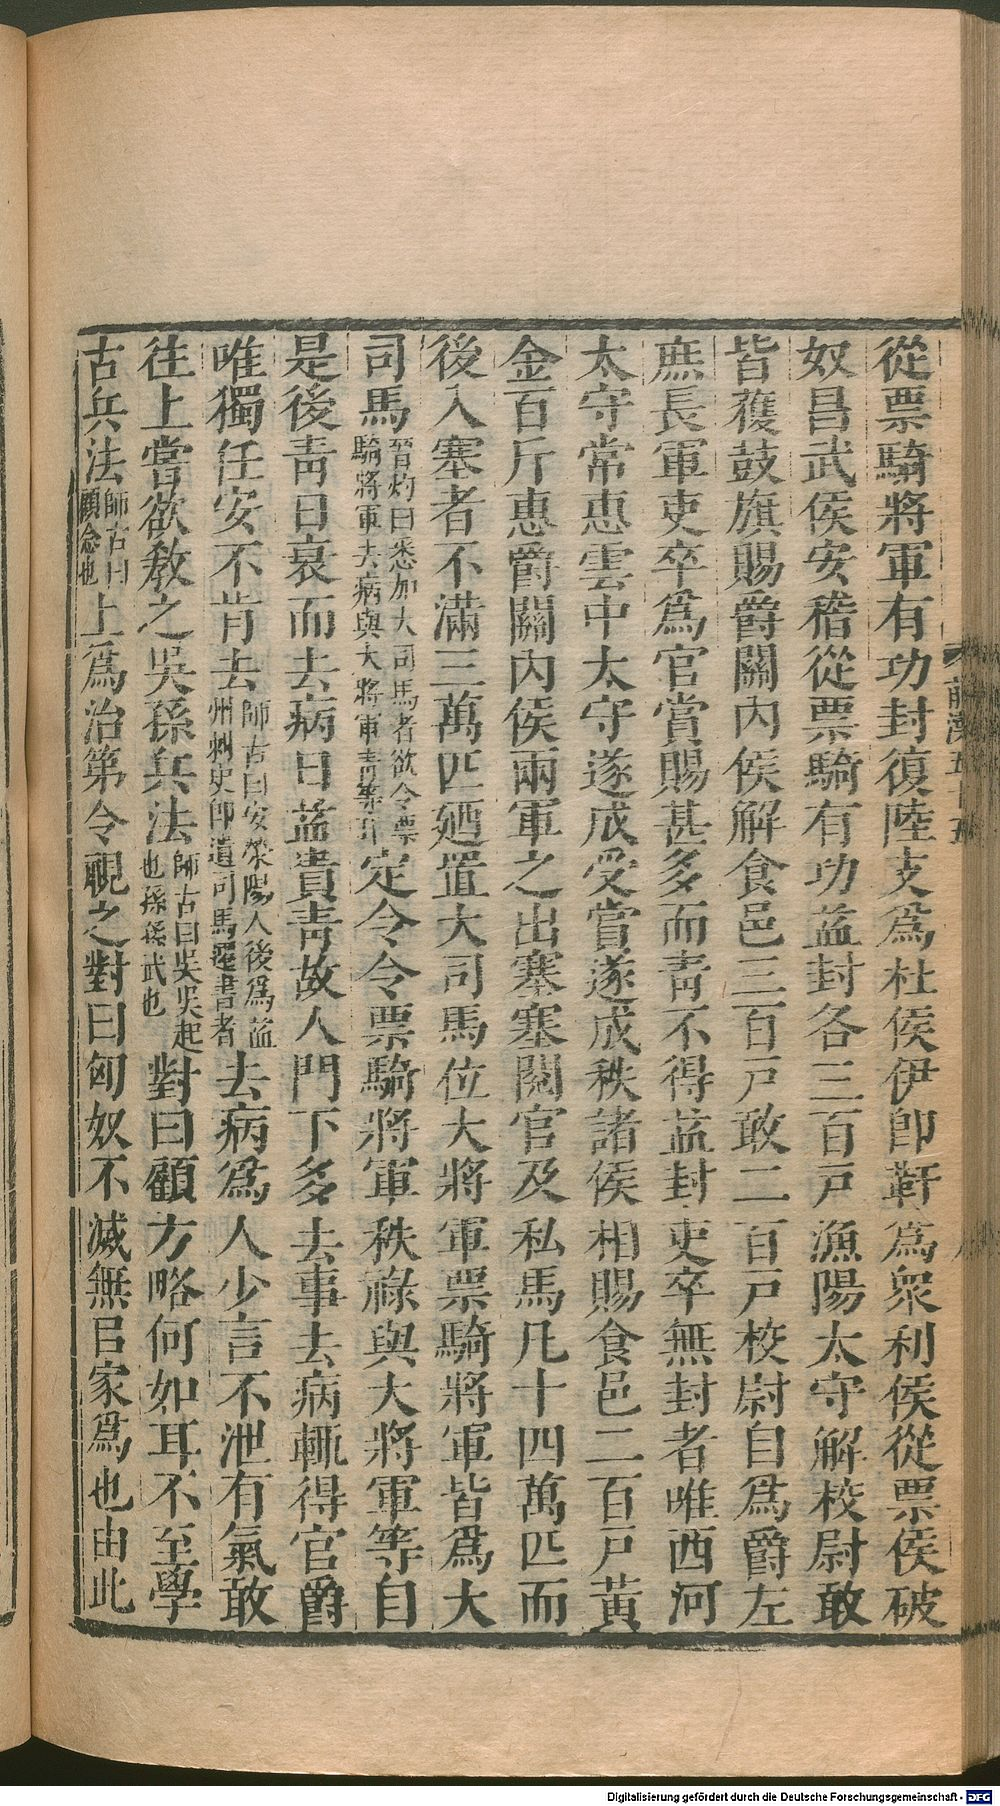 從票騎將軍有功封復陸支爲杜侯伊卽靬爲衆利侯從票侯破
奴昌武侯安稽從票騎有功益封各三百戸漁陽太守解校尉敢
皆獲鼓旗賜爵關內侯解食邑三百戸敢二百戸校尉自爲爵左
庶長軍吏卒爲官賞賜甚多而靑不得益封吏卒無封者唯西河
太守常惠雲中太守遂成受賞遂成秩諸侯相賜食邑二百戸黃
金百斤惠爵關內侯兩軍之出塞塞閱官及私馬凡十四萬匹而
後入塞者不滿三萬匹廼置大司馬位大將軍票騎將軍皆爲大
司馬晉灼曰悉加大司馬者欲令票騎將軍去病與大將軍靑等耳定令令票騎將軍秩祿與大將軍等自
是後靑日衰而去病日益貴靑故人門下多去事去病輒得官爵
唯獨任安不肯去師古曰安滎陽人後爲益州刺史卽遺司馬遷書者去病爲人少言不泄有氣敢
往上嘗欲敎之吳孫兵法師古曰吳吳起也孫孫武也對曰顧方略何如耳不至學
古兵法師古曰顧念也上爲治第令視之對曰匈奴不滅無㠯家爲也由此
前漢五十五
Digitalisierung gefördert durch die Deutsche Forschungsgemeinschaft - DFG